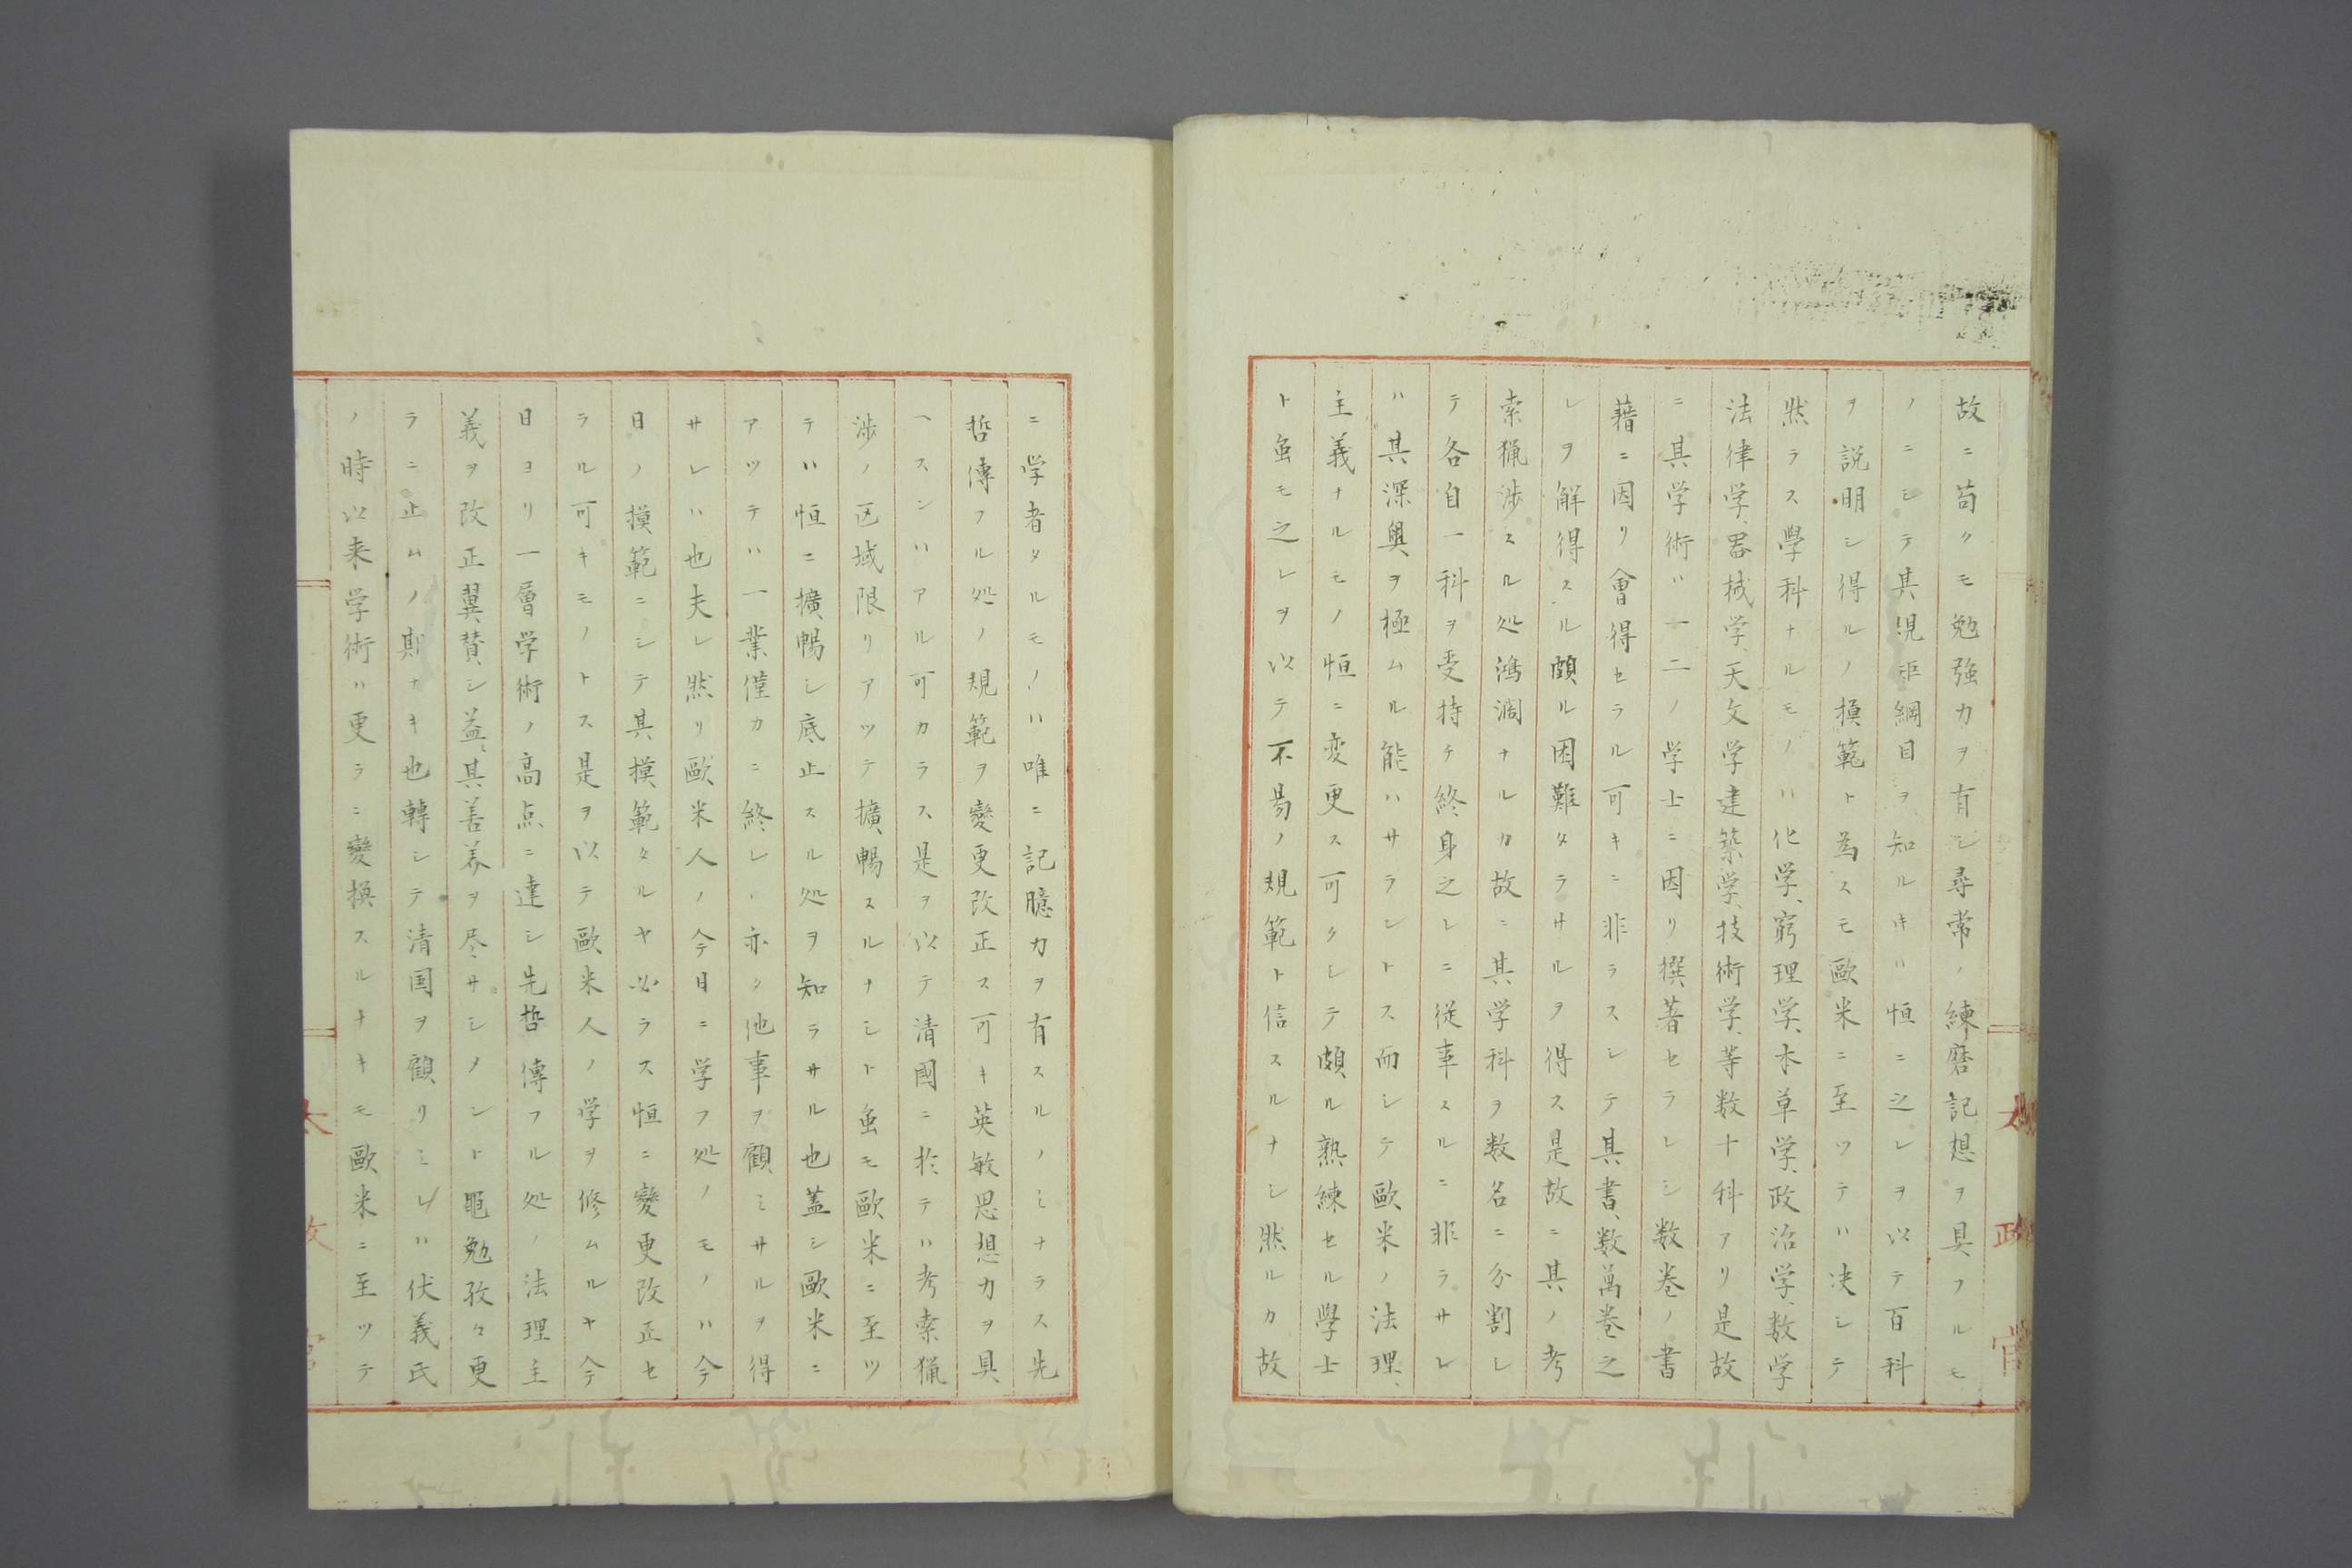 故ニ苟クモ勉強力ヲ有シ尋常ノ練磨記想ヲ具フルモ
ノニシテ其規矩綱目ヲ知ルキハ恒ニ之レヲ以テ百科
ヲ説明シ得ルノ摸範ト為スモ歐米ニ至ツテハ决シテ
然ラス學科ナルモノハ化学、窮理学、本草学、政治学、数学
法律学、器械学、天文学建築学、技術学、等数十科アリ是故
ニ其学術ハ一二ノ学士ニ因リ撰著セラレシ数巻ノ書
藉ニ因リ會得セラル可キニ非ラスシテ其書、数萬巻之
レヲ解得スル頗ル困難タラサルヲ得ス是故ニ其ノ考
索猟渉スル処鴻濶ナルカ故ニ其学科ヲ数名ニ分割シ
テ各自一科ヲ受持チ終身之レニ従事スルニ非ラサレ
ハ其深奥ヲ極ムル能ハサラントス而シテ歐米ノ法理、
主義ナルモノ恒ニ変更ス可クシテ頗ル熟練セル學士
ト虽モ之レヲ以テ不易ノ規範ト信スルナシ然ルカ故
太政官
ニ学者タルモノハ唯ニ記臆力ヲ有スルノミナラス先
哲傳フル処ノ規範ヲ變更改正ス可キ英敏思想力ヲ具
ヘスンハアル可カラス是ヲ以テ清國ニ於テハ考索猟
渉ノ区域限リアツテ擴暢スルナシト虽モ歐米ニ至ツ
テハ恒ニ擴暢シ底止スル処ヲ知ラサル也蓋シ歐米ニ
アツテハ一業僅カニ終レハ亦タ他事ヲ顧ミサルヲ得
サレハ也夫レ然リ歐米人ノ今日ニ学フ処ノモノハ今
日ノ摸範ニシテ其摸範タルヤ必ラス恒ニ變更改正セ
ラル可キモノトス是ヲ以テ歐米人ノ学ヲ修ムルヤ今
日ヨリ一層学術ノ高点ニ達シ先哲傳フル処ノ法理主
義ヲ改正翼賛シ益、其善養ヲ尽サシメント黽勉孜々更
ラニ止ムノ期ナキ也轉シテ清国ヲ顧リミレハ伏義氏
ノ時以来学術ハ更ラニ變換スルナキモ歐米ニ至ツテ
太政官